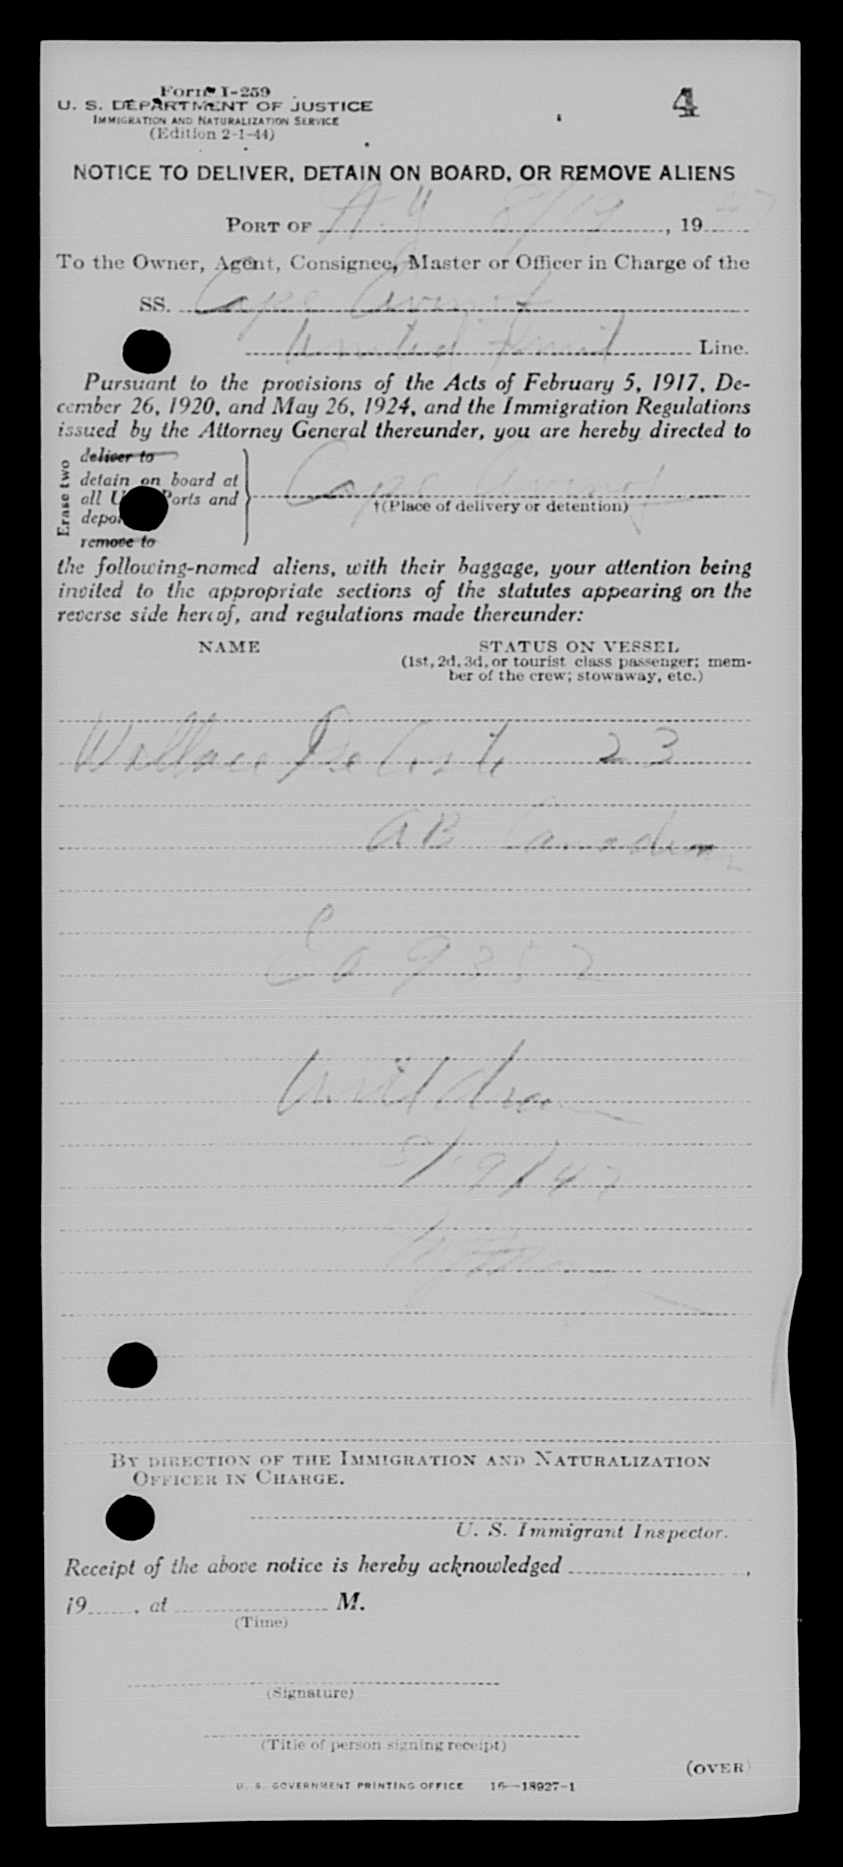 Form I-259
U. S. DEPARTMENT OF JUSTICE
IMMIGRATION AND NATURALIZATION SERVICE
(Edition 2-1-44)
4
NOTICE TO DELIVER, DETAIN ON BOARD, OR REMOVE ALIENS
PORT OF N.Y. 8/19, 1947
To the Owner, Agent, Consignee, Master or Officer in Charge of the
SS. Cape Avinof
United Fruit Line.
Pursuant to the provisions of the Acts of February 5, 1917, De-
cember 26, 1920, and May 26, 1924, and the Immigration Regulations
issued by the Attorney General thereunder, you are hereby directed to
Erase two
deliver to
detain on board at
all U. Ports and
depor
remove to
Cape Avinof
†(Place of delivery or detention)
the following-named aliens, with their baggage, your attention being
invited to the appropriate sections of the statutes appearing on the
reverse side hereof, and regulations made thereunder:
NAME STATUS ON VESSEL
(1st, 2d, 3d, or tourist class passenger; mem-
ber of the crew; stowaway, etc.)
Wallace 23
AB Canadian
9352
8/19/47
BY DIRECTION OF THE IMMIGRATION AND NATURALIZATION
OFFICER IN CHARGE.
U. S. Immigrant Inspector.
Receipt of the above notice is hereby acknowledged ,
19 , at M.
(Time)
(Signature)
(Title of person signing receipt)
(OVER)
U. S. GOVERNMENT PRINTING OFFICE 16—18927-1